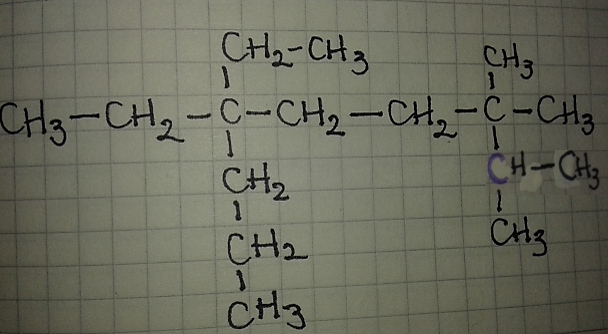 CH2-CH3 CH3
CH3-CH2-C-CH2-CH2-C-CH3
CH2 CH-CH3
CH2 CH3
CH3